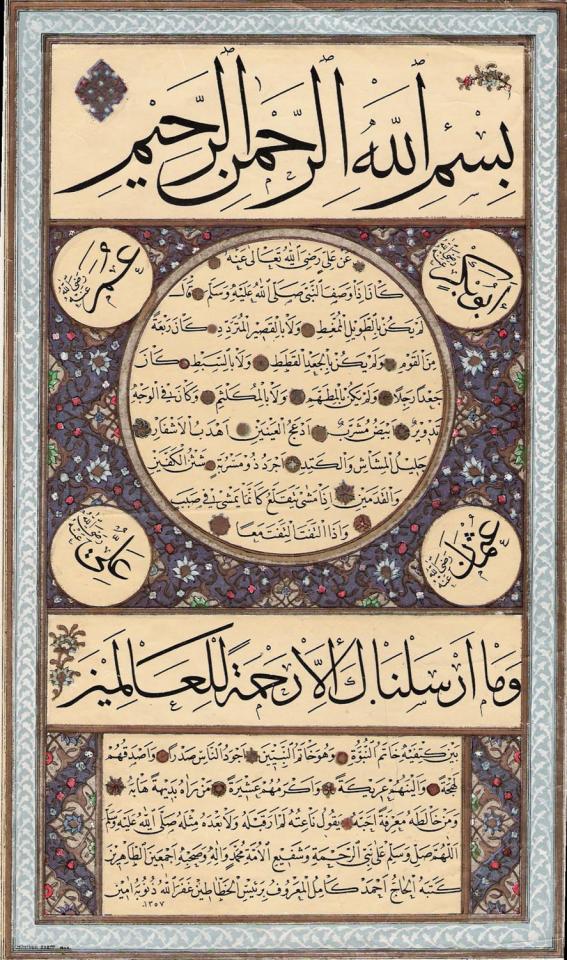 بِسْمِ اللَّهِ الرَّحْمَنِ الرَّحِيمِ
أبو بكر رضي الله عنه
عمر رضي الله عنه
عن علي رضي الله تعالى عنه
كان اذا وصف النبي صلى الله عليه وسلم قال
لم يكن بالطويل الممغط ولا بالقصير المتردد كان ربعة
من القوم ولم يكن بالجعد القطط ولا بالسبط كان
جعدا رجلا ولم يكن بالمطهم ولا بالمكلثم وكان في الوجه
تدوير ابيض مشرب ادعج العينين اهدب الاشفار
جليل المشاش والكتد اجرد ذو مسربة شثن الكفين
والقدمين اذا مشى يتقلع كانما يمشي في صبب
واذا التفت التفت معا
عثمان رضي الله عنه
علي رضي الله عنه
وما ارسلناك الا رحمة للعالمين
بين كتفيه خاتم النبوة وهو خاتم النبيين اجود الناس صدرا واصدقهم
لهجة والينهم عريكة واكرمهم عشيرة من راه بديهة هابه
ومن خالطه معرفة احبه يقول ناعته لم ار قبله ولا بعده مثله صلى الله عليه وسلم
اللهم صل وسلم على نبي الرحمة وشفيع الامة محمد واله وصحبه اجمعين الطاهرين
كتبه الحاج احمد كامل المعروف برئيس الخطاطين غفر الله ذنوبه امين
١٣٥٧